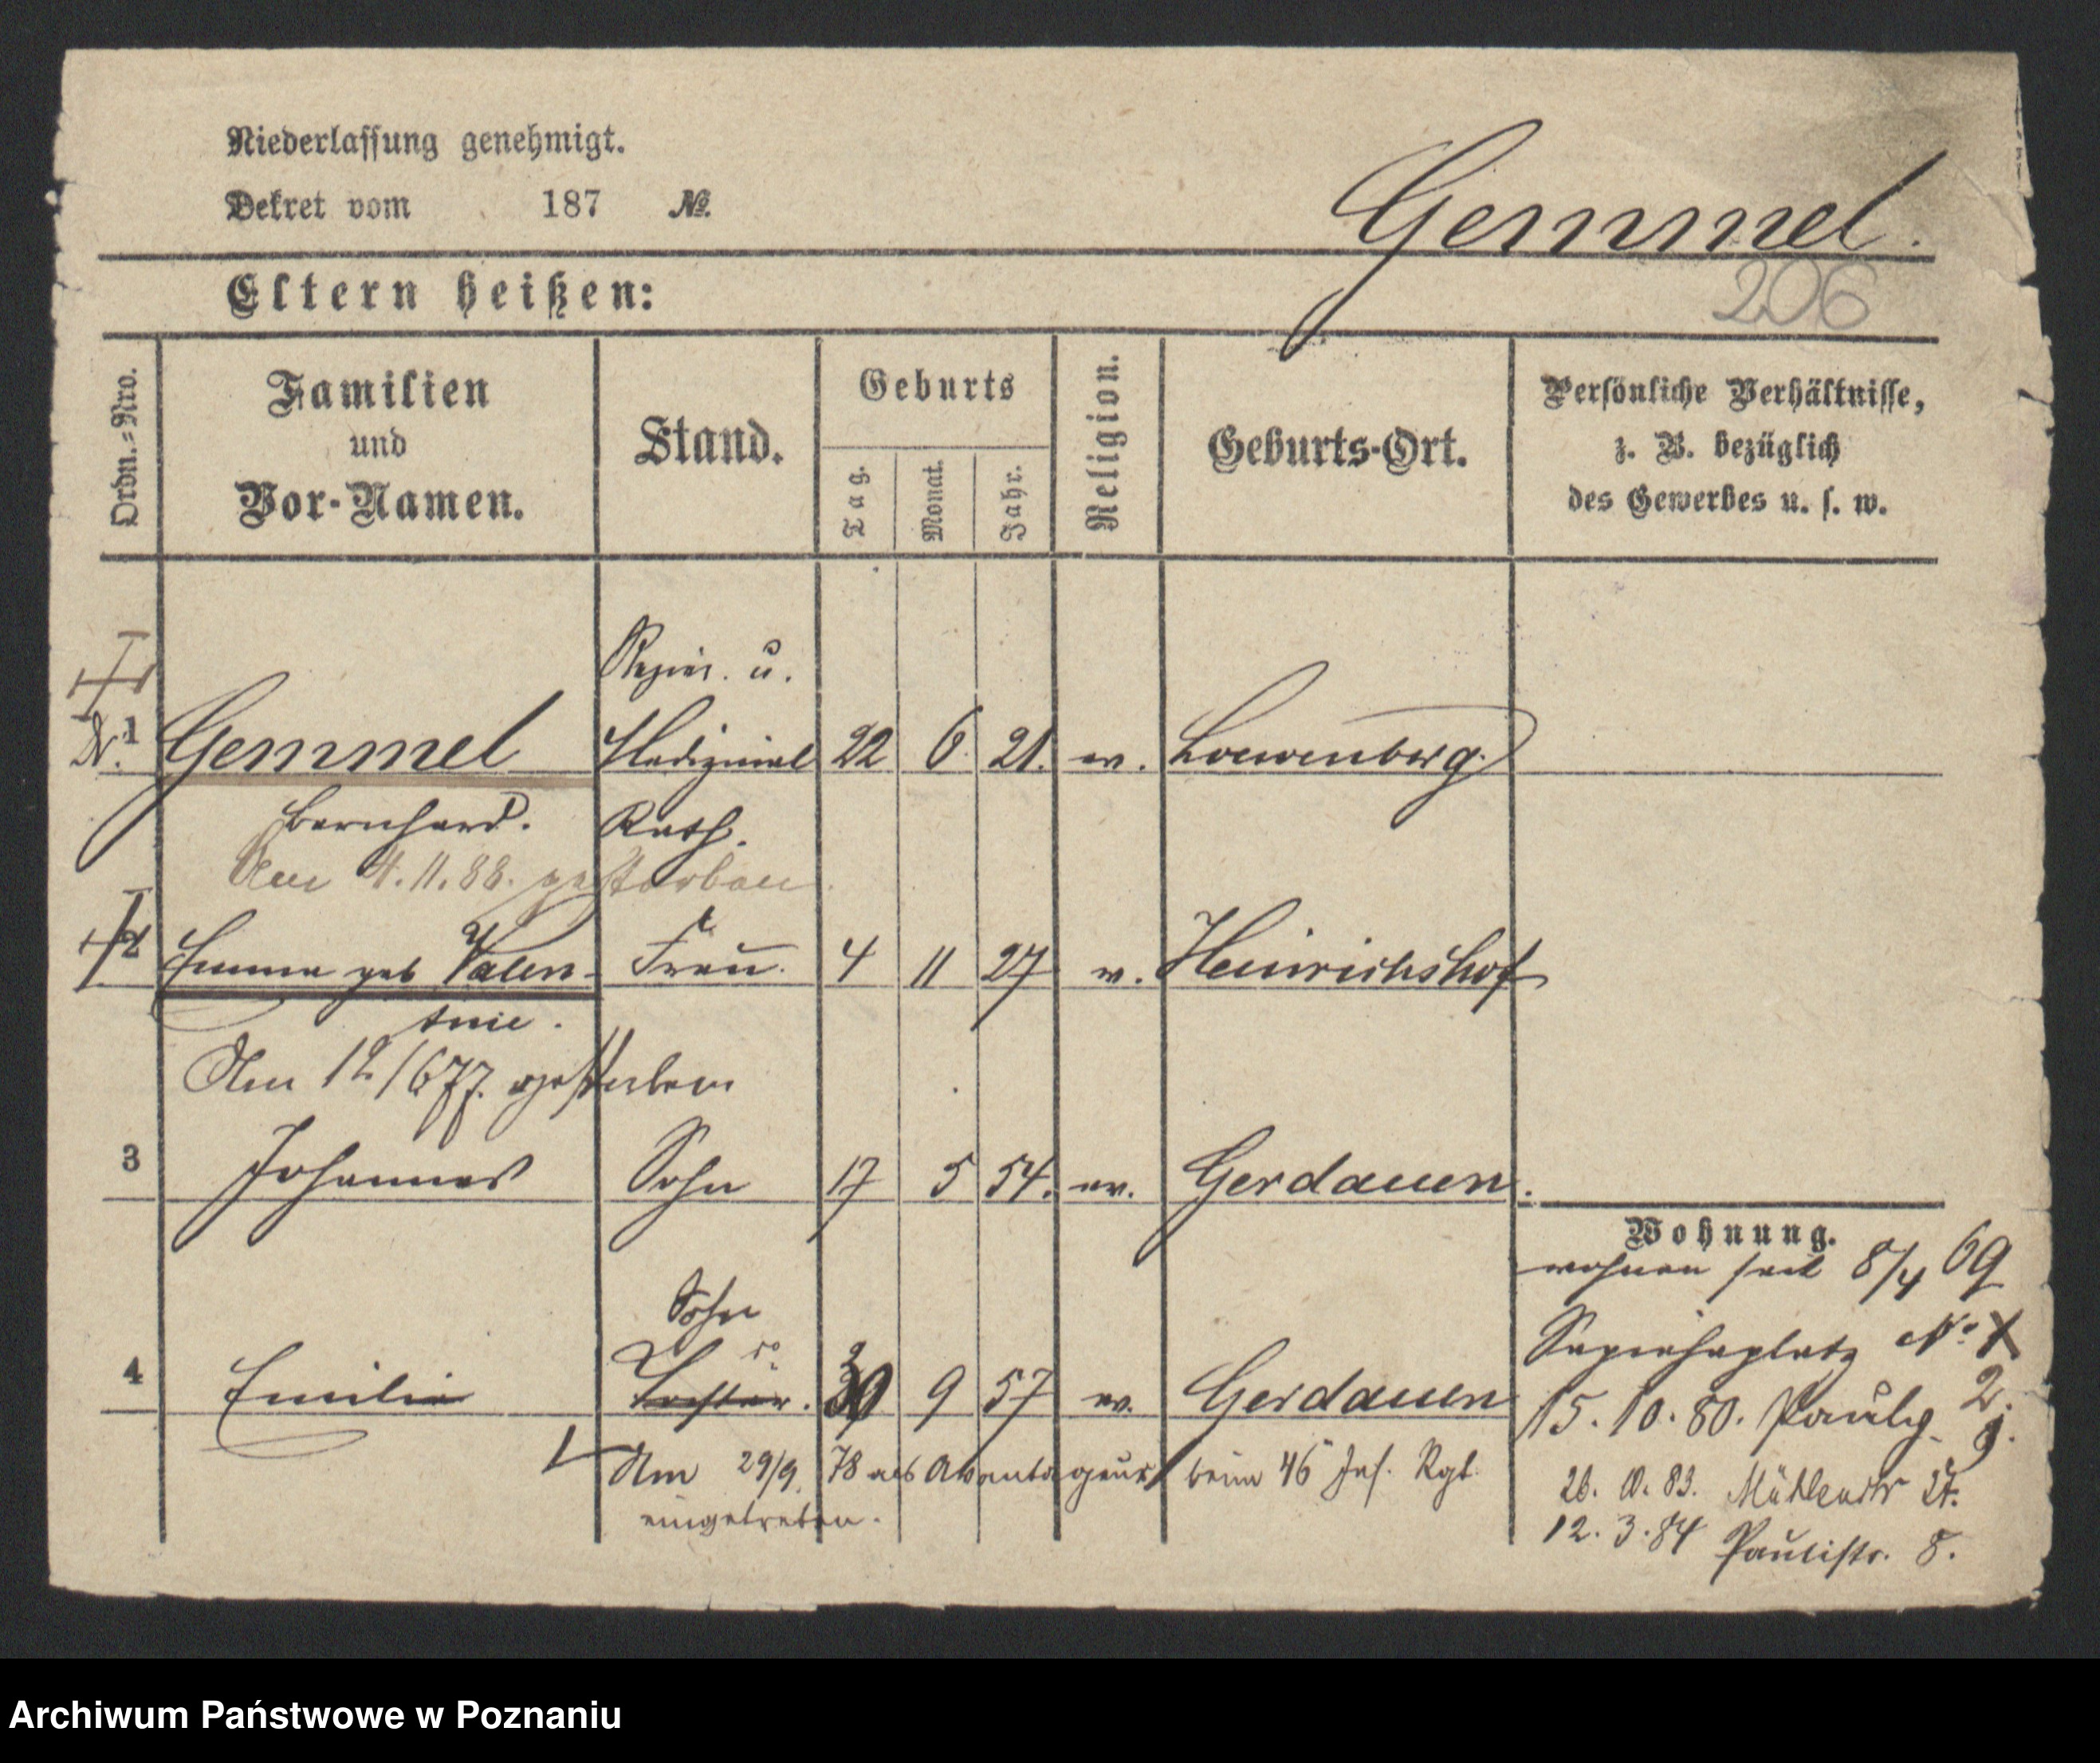 Niederlassung genehmigt.
Dekret vom 187 №.
Gemmel.
206
Eltern heißen:
Ordn.=Nro.
Familien
und
Vor-Namen.
Stand.
Geburts
Tag.
Monat.
Jahr.
Religion.
Geburts-Ort.
Persönliche Verhältnisse,
z. B. bezüglich
des Gewerbes u. s. w.
Regier. u.
Dr. 1 Gemmel Medizinal 22 6. 21. ev. Loewenberg.
Bernhard. Rath.
Am 4.11.88. gestorben
2 Emma geb Valen- Frau. 4 11 27 ev. Heinrichshof
tnie.
Am 12/6 77. gestorben
3 Johannes Sohn 17 5 54. ev. Gerdauen.
Wohnung.
wohnen seit 8/4 69
Sohn
Sapiehaplatz No
4 Emilio Tochter. 30 9 57 ev. Gerdauen
2.
15. 10. 80. Paulg. 9.
Am 29/9. 78 als Avantageur beim 46 Inf. Rgt.
eingetreten.
26. 10. 83. Mühlenstr 27.
12. 3. 84 Paulistr. 8.
Archiwum Państwowe w Poznaniu